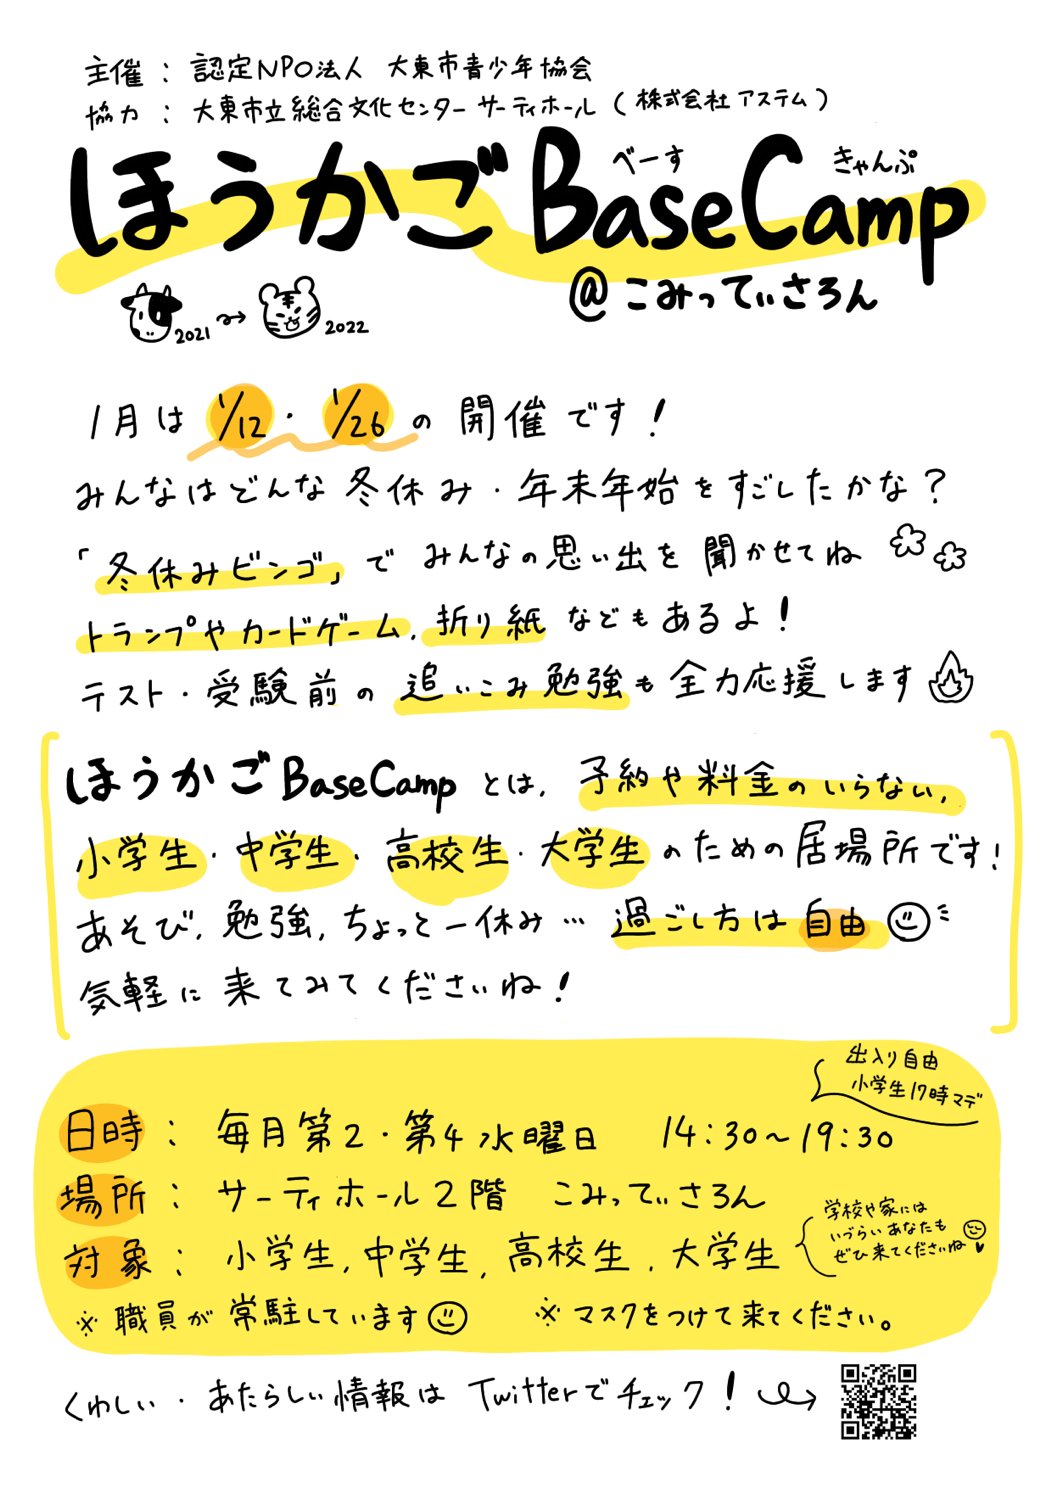 主催 : 認定NPO法人 大東市青少年協会
協力 : 大東市立総合文化センター サーティホール (株式会社アステム)
べーす きゃんぷ
ほうかごBaseCamp
@こみってぃさろん
2021 2022
1月は 1/12・1/26の 開催です!
みんなはどんな冬休み・年末年始をすごしたかな?
「冬休みビンゴ」で みんなの思い出を 聞かせてね
トランプやカードゲーム、折り紙 などもあるよ!
テスト・受験前の 追いこみ勉強も 全力応援します
ほうかごBaseCampとは、予約や料金のいらない、
小学生・中学生・高校生・大学生のための居場所です!
あそび、勉強、ちょっと一休み… 過ごし方は自由
気軽に来てみてくださいね!
出入り自由
小学生17時マデ
日時 : 毎月第2・第4水曜日 14:30~19:30
場所 : サーティホール2階 こみってぃさろん
学校や家には
いづらいあなたも
ぜひ来てくださいね
対象 : 小学生、中学生、高校生、大学生
※職員が常駐しています ※マスクをつけて来てください。
くわしい・あたらしい情報は Twitterでチェック!